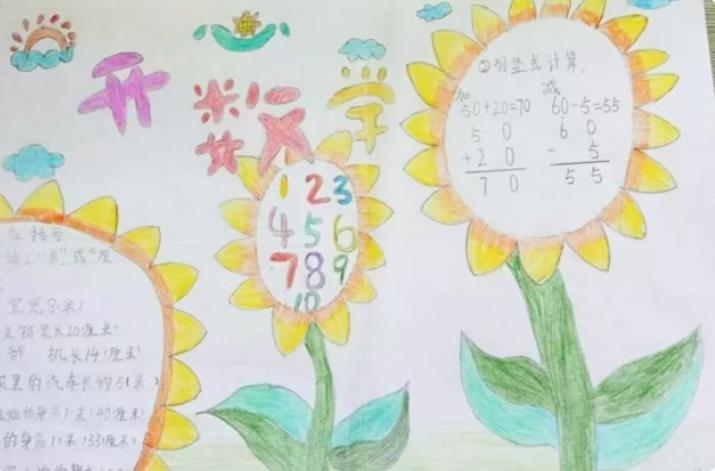 开数学
1 2 3
4 5 6
7 8 9
10
②列竖式计算。
加 减
50+20=70 60-5=55
5 0 6 0
+2 0 - 5
7 0 5 5
在括号
填上"米"或"厘
宽8(米)
铅笔长20(厘米)
部 机长14(厘米)
里的汽车长约5(米)
身高1(米)40(厘米)
的身高1(米)33(厘米)